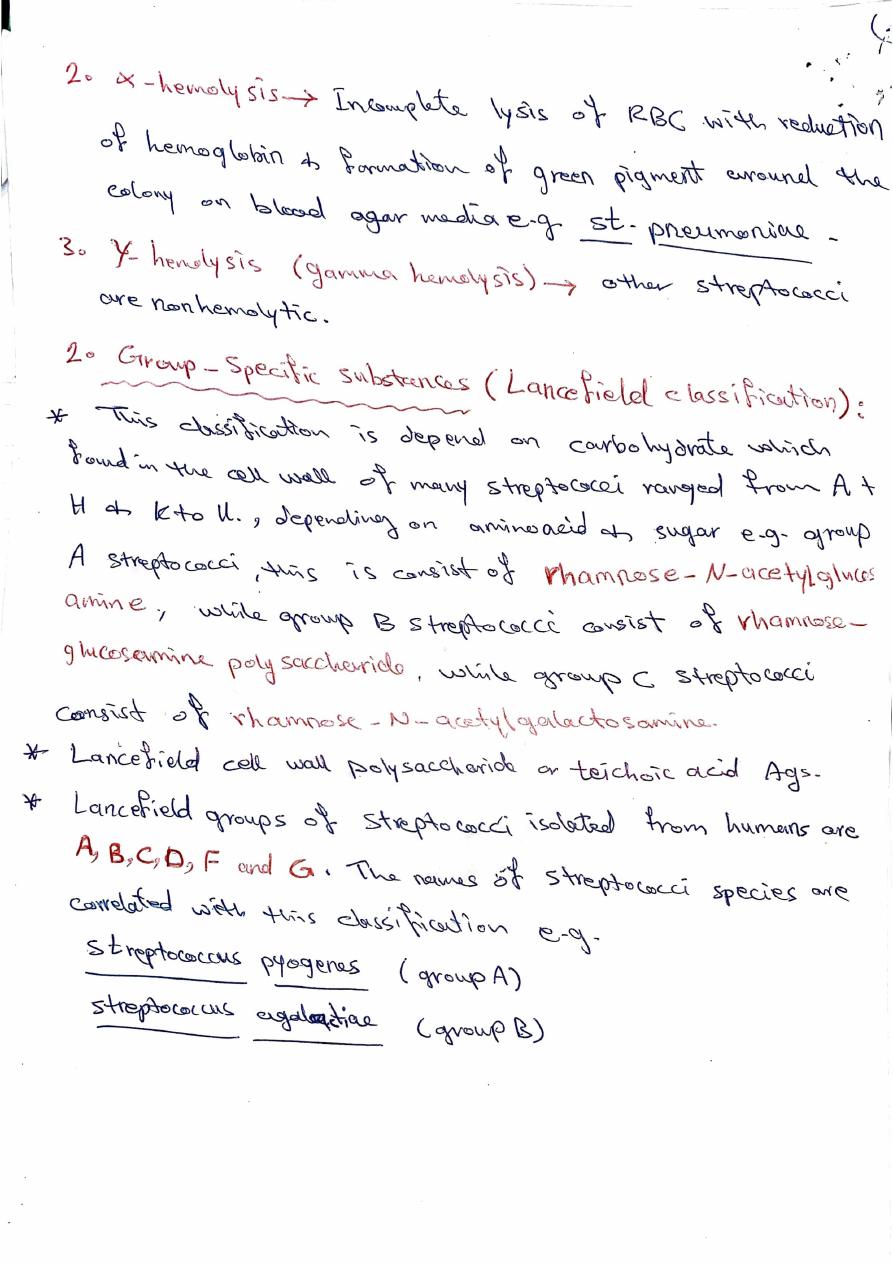 2. α-hemolysis → Incomplete lysis of RBC with reduction
of hemoglobin & formation of green pigment around the
colony on blood agar media e.g st. pneumoniae -
3. γ- hemolysis (gamma hemolysis) → other streptococci
are nonhemolytic.
2. Group-Specific substances (Lancefield classification):
* This classification is depend on carbohydrate which
found in the cell wall of many streptococci ranged from A t
H & K to U., depending on amino acid & sugar e.g. group
A streptococci, this is consist of rhamnose-N-acetylglucos
amine, while group B streptococci consist of rhamnose-
glucosamine polysaccharide, while group C streptococci
consist of rhamnose-N-acetylgalactosamine.
* Lancefield cell wall polysaccharide or teichoic acid Ags.
* Lancefield groups of streptococci isolated from humans are
A, B, C, D, F and G. The names of streptococci species are
correlated with this classification e.g.
Streptococcus pyogenes (group A)
streptococcus agalactiae (group B)